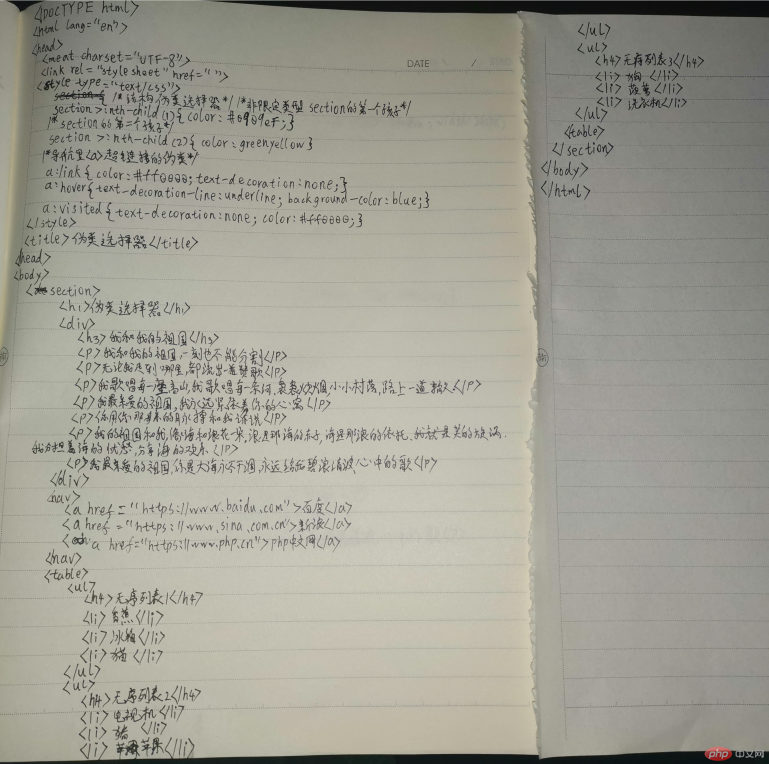 <!DOCTYPE html>
<html lang="en">
<head>
<meat charset="UTF-8">
<link rel="stylesheet" href=" ">
<style type="text/css">
/*结构伪类选择器*/ /*非限定类型 section的第一个孩子*/
section>:nth-child(1){color:#6909ef;}
/*section的第二个孩子*/
section>:nth-child(2){color:greenyellow}
/*导航里<a>超链接的伪类*/
a:link{color:#ff0000; text-decoration:none;}
a:hover{text-decoration-line:underline; background-color:blue;}
a:visited{text-decoration:none; color:#ff0000;}
</style>
<title>伪类选择器</title>
<head>
<body>
<section>
<h1>伪类选择器</h1>
<div>
<h3>我和我的祖国</h3>
<p>我和我的祖国,一刻也不能分割</p>
<p>无论我走到哪里,都流出一首赞歌</p>
<p>我歌唱每一座高山,我歌唱每一条河,袅袅炊烟,小小村落,路上一道辙</p>
<p>我最亲爱的祖国,我永远紧依着你的心窝</p>
<p>你用你那母亲的脉搏和我诉说</p>
<p>我的祖国和我,像海和浪花一朵,浪是那海的赤子,海是那浪的依托,
我分担着海的忧愁,分享海的欢乐</p>
<p>我最亲爱的祖国,你是大海永不干涸,永远给我碧浪清波,心中的歌</p>
</div>
<nav>
<a href="https://www.baidu.com">百度</a>
<a href="https://www.sina.com.cn">新浪</a>
<a href="https://www.php.cn">php中文网</a>
<nav>
<table>
<ul>
<h4>无序列表1</h4>
<li>香蕉</li>
<li>冰箱</li>
<li>猫</li>
</ul>
<ul>
<h4>无序列表2</h4>
<li>电视机</li>
<li>猪</li>
<li>苹果</li>
DATE / /
</ul>
<ul>
<h4>无序列表3</h4>
<li>狗</li>
<li>菠萝</li>
<li>洗衣机</li>
</ul>
<table>
</section>
</body>
</html>
php 中文网